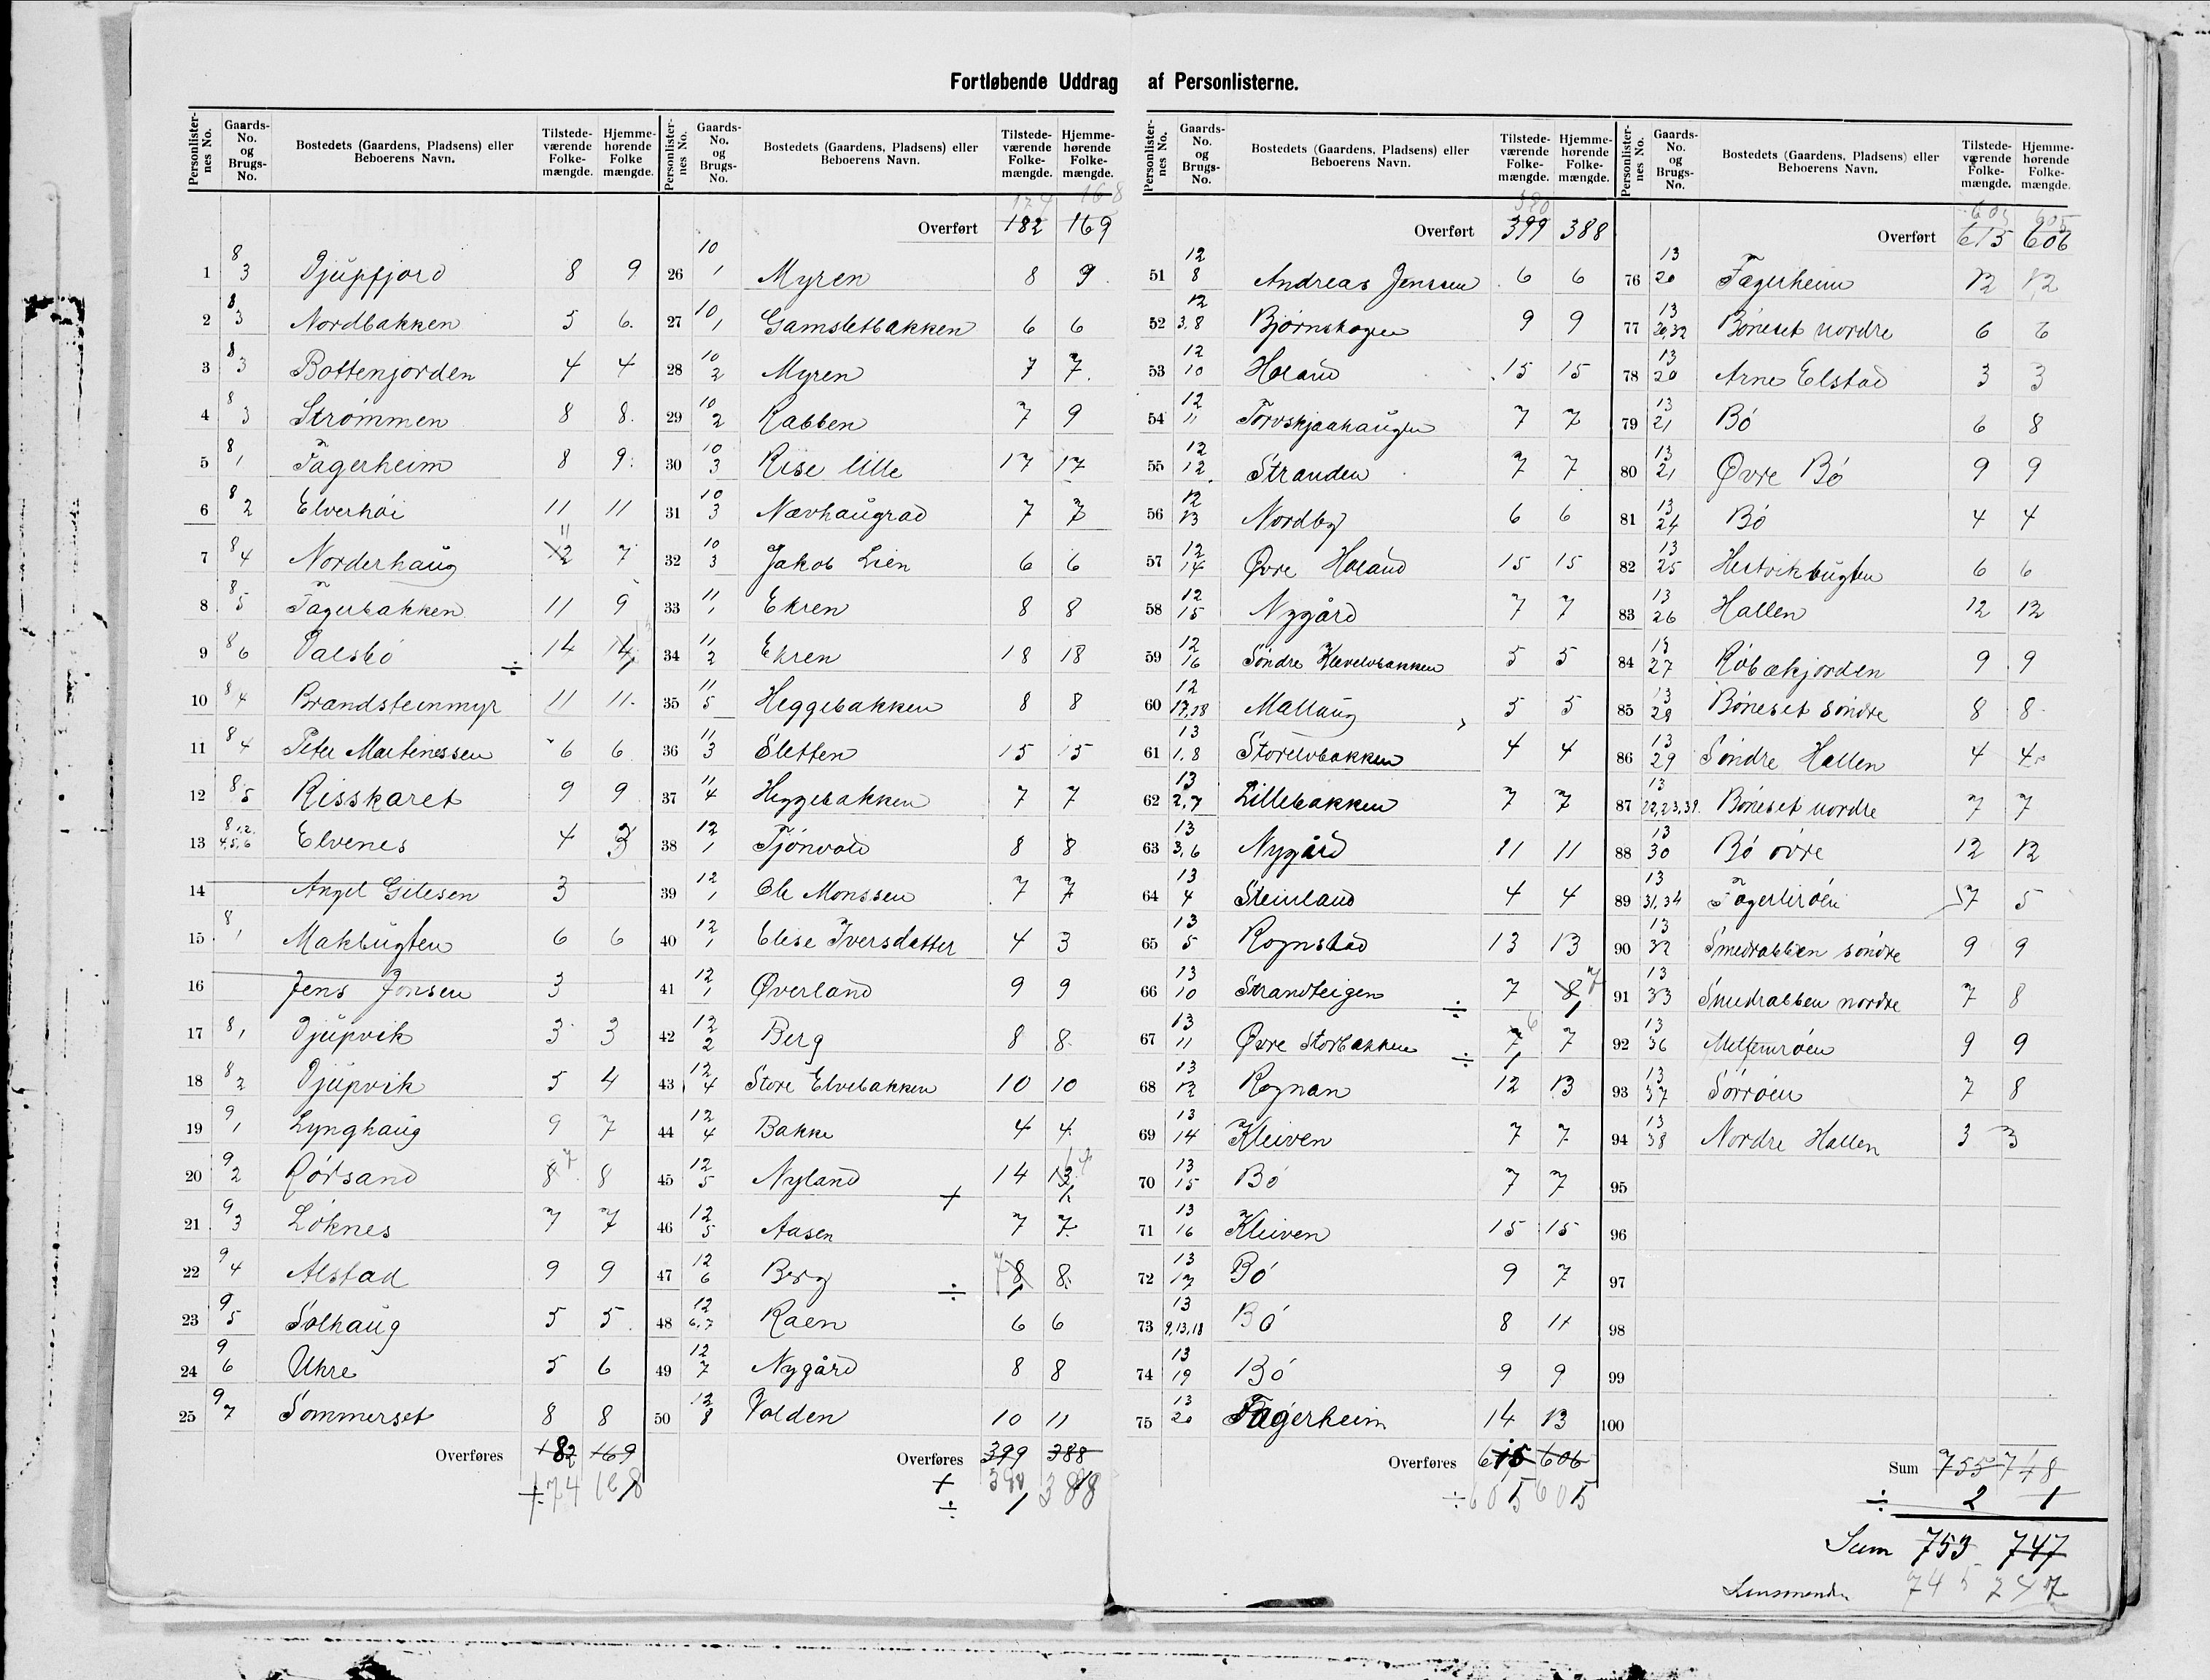 Fortløbende Uddrag af Personlisterne.
Personlister-nes No. | Gaards-No. og Brugs-No. | Bostedets (Gaardens, Pladsens) eller Beboerens Navn. | Tilstede-værende Folke-mængde. | Hjemme-hørende Folke mængde.
1 | 8 3 | Djupfjord | 8 | 9
2 | 8 3 | Nordbakken | 5 | 6.
3 | 8 3 | Bottenjorden | 4 | 4
4 | 8 3 | Strømmen | 8 | 8.
5 | 8 1 | Fagerheim | 8 | 9.
6 | 8 2 | Elverhøi | 11 | 11
7 | 8 4 | Norderhaug | 12 11 | 7
8 | 8 5 | Fagerbakken | 11 | 9
9 | 8 6 | Valsbø ÷ | 14 | 14
10 | 8 4 | Brandsteinmyr | 11 | 11.
11 | 8 4 | Peter Martinessen | 6 | 6
12 | 8 5 | Risskaret | 9 | 9
13 | 8 1,2, 4,5,6 | Elvenes | 4 | 3
14 | Angel Gilesen | 3
15 | 8 1 | Makbugten | 6 | 6
16 | Jens Jonsen | 3
17 | 8 1 | Djupvik | 3 | 3
18 | 8 2 | Djupvik | 5 | 4
19 | 9 1 | Lynghaug | 9 | 7
20 | 9 2 | Rørsand | 8 7 | 8
21 | 9 3 | Løknes | 7 | 7
22 | 9 4 | Alstad | 9 | 9
23 | 9 5 | Solhaug | 5 | 5.
24 | 9 6 | Uhre | 5 | 6
25 | 9 7 | Sommerset | 8 | 8
Overføres 182 169
174 168
Personlister-nes No. | Gaards-No. og Brugs-No. | Bostedets (Gaardens, Pladsens) eller Beboerens Navn. | Tilstede-værende Folke-mængde. | Hjemme-hørende Folke-mængde.
174 168
Overført 182 169
26 | 10 1 | Myren | 8 | 9.
27 | 10 1 | Gamsletbakken | 6 | 6
28 | 10 2 | Myren | 7 | 7.
29 | 10 2 | Rabben | 7 | 9
30 | 10 3 | Rise lille | 17 | 17
31 | 10 3 | Nævhaugrad | 7 | 7
32 | 10 3 | Jakob Lien | 6 | 6
33 | 11 1 | Ekren | 8 | 8
34 | 11 2 | Ekren | 18 | 18
35 | 11 5 | Heggebakken | 8 | 8
36 | 11 3 | Sletten | 15 | 15
37 | 11 4 | Heggebakken | 7 | 7
38 | 12 1 | Tjønvold | 8 | 8
39 | 12 1 | Ole Monssen | 7 | 7
40 | 12 1 | Elise Iversdatter | 4 | 3
41 | 12 1 | Øverland | 9 | 9
42 | 12 2 | Berg | 8 | 8.
43 | 12 4 | Store Elvebakken | 10 | 10
44 | 12 4 | Bakke | 4 | 4
45 | 12 5 | Nyland + | 14 | 13 14 1
46 | 12 5 | Aasen | 7 | 7.
47 | 12 6 | Berg ÷ | 7 8 1 | 8.
48 | 12 6,7 | Raen | 6 | 6
49 | 12 7 | Nygård | 8 | 8
50 | 12 8 | Volden | 10 | 11
Overføres 399 388
+ 390 388
÷ 1
Personlister-nes No. | Gaards-No. og Brugs-No. | Bostedets (Gaardens, Pladsens) eller Beboerens Navn. | Tilstede-værende Folke-mængde. | Hjemme-hørende Folke-mængde.
390
Overført 399 388
51 | 12 8 | Andreas Jenssen | 6 | 6
52 | 12 3,8 | Bjørnskogen | 9 | 9
53 | 12 10 | Høland | 15 | 15
54 | 12 11 | Torvskjaahaugen | 7 | 7
55 | 12 12 | Stranden | 7 | 7
56 | 12 13 | Nordby | 6 | 6
57 | 12 14 | Øvre Høland | 15 | 15
58 | 12 15 | Nygård | 7 | 7
59 | 12 16 | Søndre Klevelvbakken | 5 | 5
60 | 12 17,18 | Mallaug | 5 | 5
61 | 13 1.8 | Storelvbakken | 4 | 4
62 | 13 2,7 | Lillebakken | 7 | 7
63 | 13 3,6 | Nygård | 11 | 11
64 | 13 4 | Steinland | 4 | 4
65 | 13 5 | Rognstad | 13 | 13
66 | 13 10 | Strandteigen ÷ | 7 | 8 7 1
67 | 13 11 | Øvre Storbakken ÷ | 7 6 1 | 7
68 | 13 12 | Rognan | 12 | 13
69 | 13 14 | Kleiven | 7 | 7
70 | 13 15 | Bø | 7 | 7
71 | 13 16 | Kleiven | 15 | 15
72 | 13 17 | Bø | 9 | 7
73 | 13 9,13,18 | Bø | 8 | 11
74 | 13 19 | Bø | 9 | 9
75 | 13 20 | Fagerheim | 14 | 13
Overføres 615 606
÷ 605 605
Personlister-nes No. | Gaards-No. og Brugs-No. | Bostedets (Gaardens, Pladsens) eller Beboerens Navn. | Tilstede-værende Folke-mængde. | Hjemme-hørende Folke-mængde.
605 605
Overført 615 606
76 | 13 20 | Fagerheim | 12 | 12
77 | 13 20,32 | Bøneset nordre | 6 | 6
78 | 13 20 | Arne Elstad | 3 | 3
79 | 13 21 | Bø | 6 | 8
80 | 13 21 | Øvre Bø | 9 | 9
81 | 13 24 | Bø | 4 | 4
82 | 13 25 | Hestvikbugten | 6 | 6
83 | 13 26 | Hallen | 12 | 12
84 | 13 27 | Røbækjorden | 9 | 9
85 | 13 28 | Bøneset søndre | 8 | 8
86 | 13 29 | Søndre Hallen | 4 | 4
87 | 13 22,23,39. | Bøneset nordre | 7 | 7
88 | 13 30 | Bø øvre | 12 | 12
89 | 13 31,34 | Fagerlirøen | 57 | 5
90 | 13 32 | Smedrabben søndre | 9 | 9
91 | 13 33 | Smedrabben nordre | 7 | 8
92 | 13 36 | Mellemrøen | 9 | 9
93 | 13 37 | Sørrøen | 7 | 8
94 | 13 38 | Nordre Hallen | 3 | 3
95
96
97
98
99
100
Sum 755 748
÷ 2 1
Sum 753 747
745 747